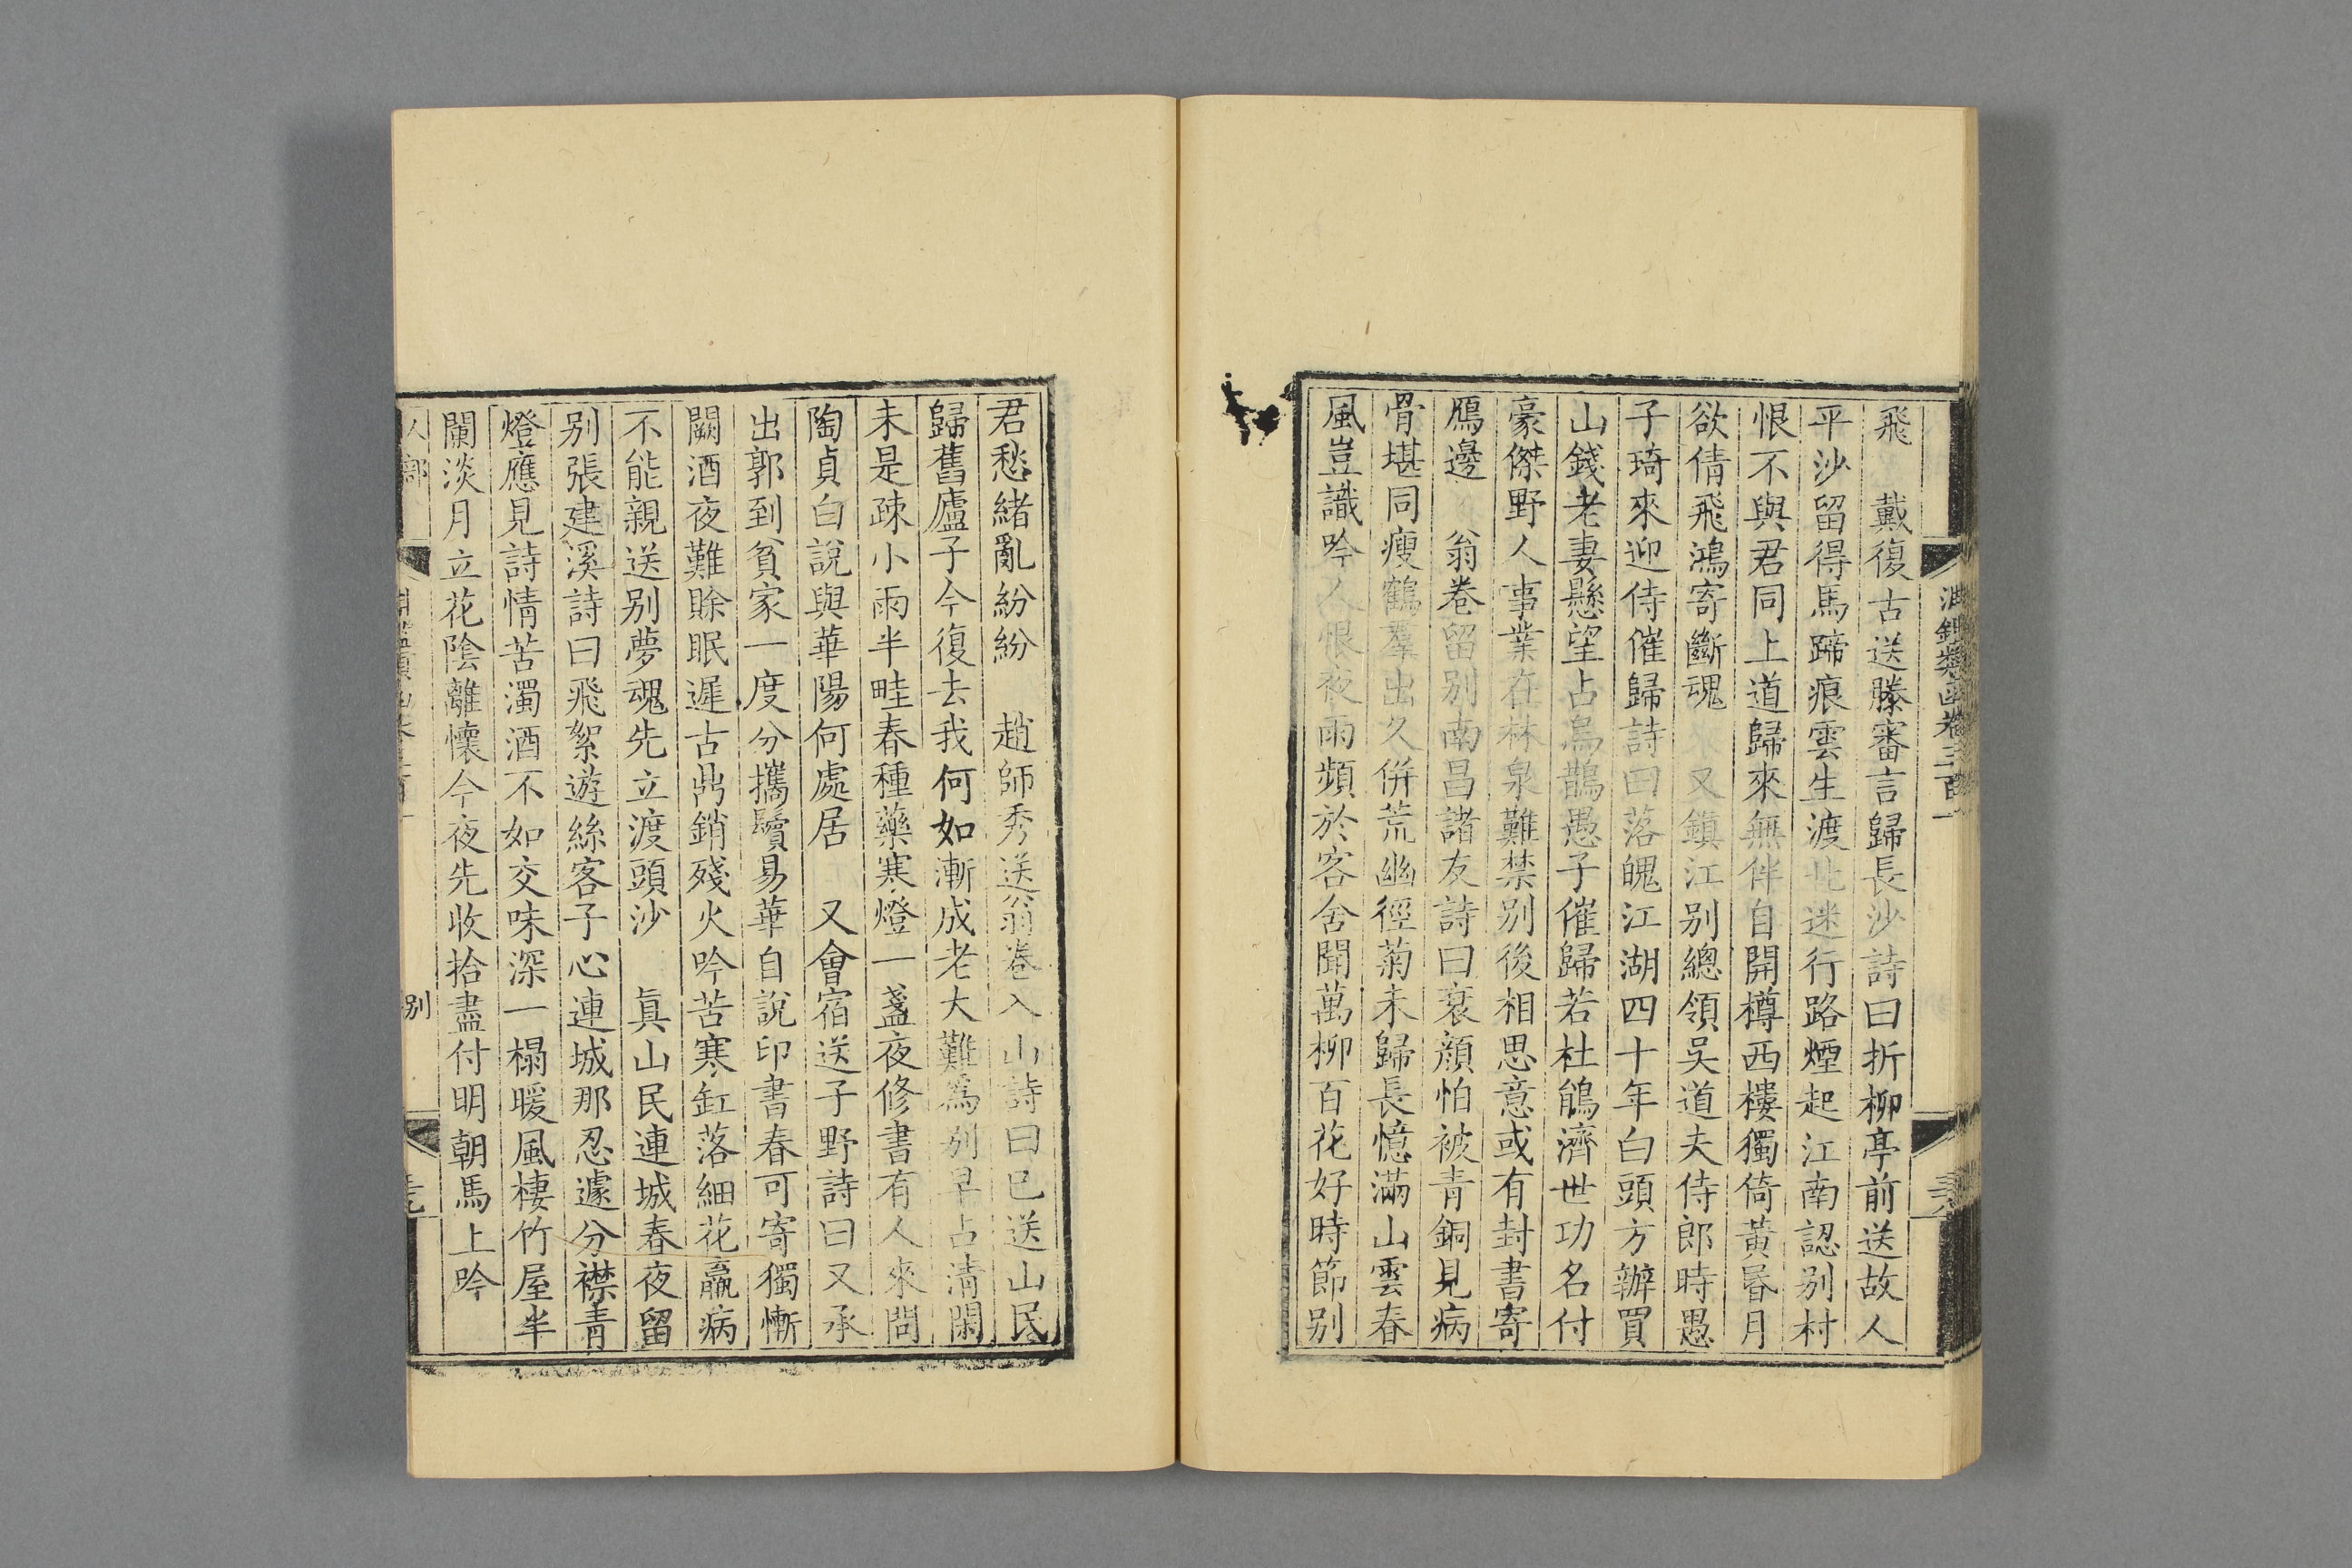 淵鑑類函卷三百一
飛　戴復古送滕審言歸長沙詩曰折柳亭前送故人
平沙留得馬蹄痕雲生渡北迷行路煙起江南認别村
恨不與君同上道歸來無伴自開樽西樓獨倚黃昏月
欲倩飛鴻寄斷魂　又鎮江别總領吴道夫侍郎時愚
子琦來迎侍催歸詩曰落魄江湖四十年白頭方辦買
山錢老妻懸望占烏鵲愚子催歸若杜鵑濟世功名付
豪傑野人事業在林泉難禁别後相思意或有封書寄
鴈邊　翁卷留别南昌諸友詩曰衰顔怕被青銅見病
骨堪同瘦鶴羣出久併荒幽徑菊未歸長憶滿山雲春
風豈識吟人恨夜雨頻於客舍聞萬柳百花好時節别
君愁緒亂紛紛　趙師秀送翁卷入山詩曰已送山民
歸舊廬子今復去我何如漸成老大難爲别早占清閑
未是疎小雨半畦春種藥寒燈一盞夜修書有人來問
陶貞白說與華陽何處居　又會宿送子野詩曰又承
出郭到貧家一度分攜鬢易華自說印書春可寄獨慚
闕酒夜難賒眠遲古鼎銷殘火吟苦寒缸落細花羸病
不能親送别夢魂先立渡頭沙　眞山民連城春夜留
别張建溪詩曰飛絮遊絲客子心連城那忍遽分襟青
燈應見詩情苦濁酒不如交味深一榻暖風棲竹屋半
闌淡月立花陰離懷今夜先收拾盡付明朝馬上吟
人部
别